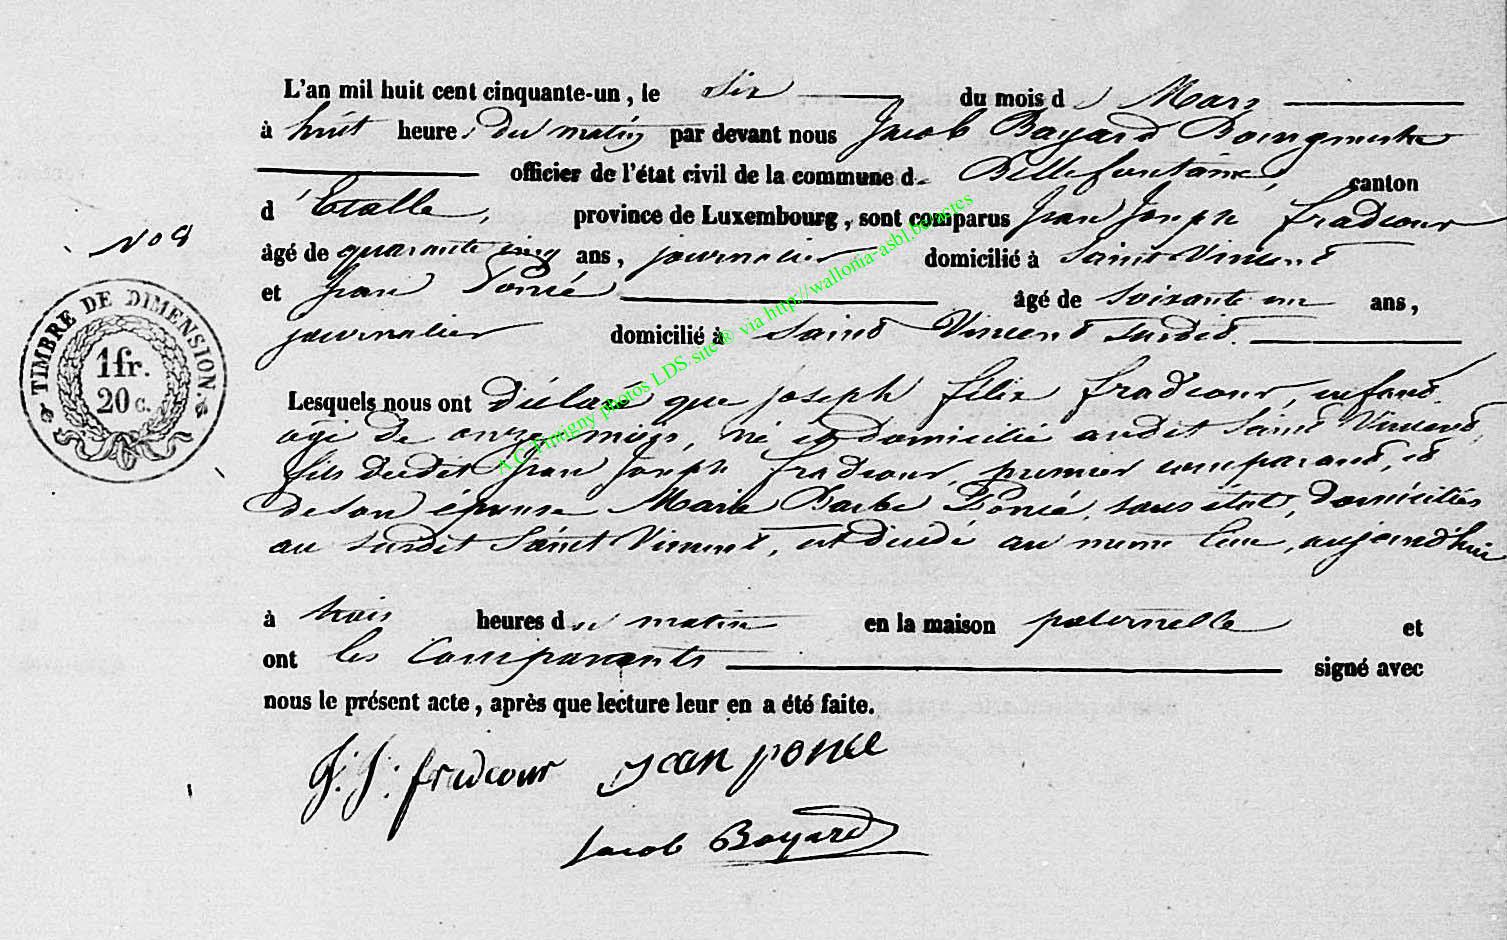 L'an mil huit cent cinquante-un, le six du mois de Mars
à huit heures du matin par devant nous Jacob Bayard Bourgmestre
officier de l'état civil de la commune de Bellefontaine, canton
d'Etalle, province de Luxembourg, sont comparus Jean Joseph fradcour
No 8
âgé de quarante cinq ans, journalier domicilié à Saint Vincent
et Jean Poncé âgé de soixante un ans,
journalier domicilié à Saint Vincent susdit.
TIMBRE DE DIMENSION.
1 fr.
20 c.
Lesquels nous ont déclaré que joseph félix fradcour, enfant
âgé de onze mois, né et domicilié audit Saint Vincent,
fils dudit Jean Joseph fradcour, premier comparant, et
de son épouse Marie Barbe Poncé, sans état, domiciliés
au susdit Saint Vincent, est décédé au même lieu, aujourd'hui
à trois heures du matin en la maison paternelle et
ont les comparants signé avec
nous le présent acte, après que lecture leur en a été faite.
J. J. fradcour jean ponce
Jacob Bayard
A.C. Tintigny photos LDS. site® via http://wallonia-asbl.be/actes